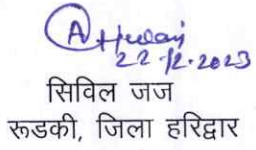 A
22.12.2023
सिविल जज
रूडकी, जिला हरिद्वार